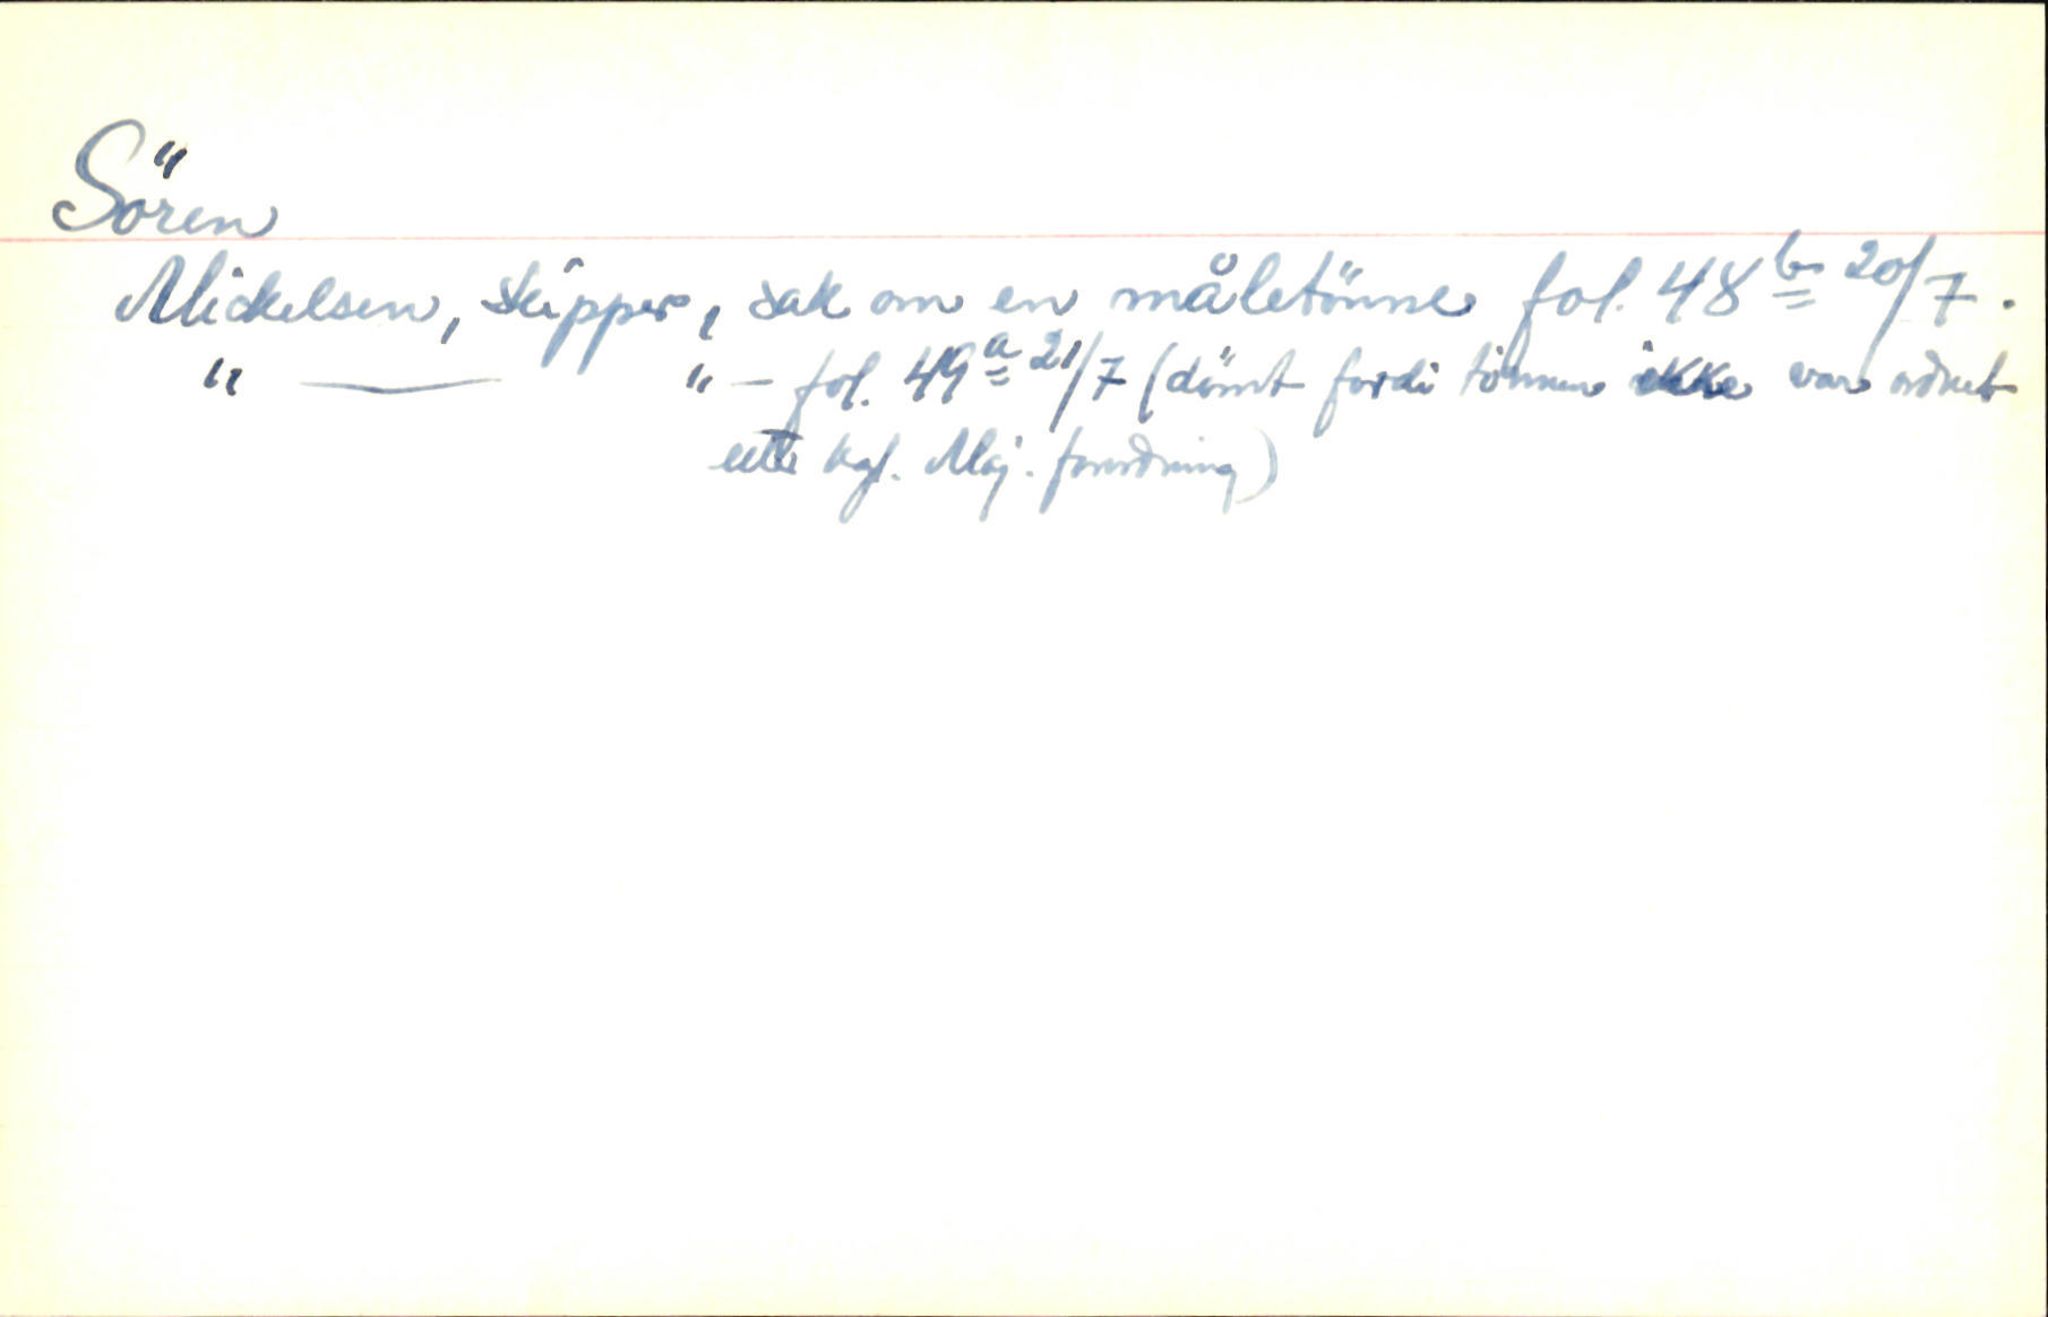 Sören
Mickelsen, skipper, sak om en måletönne fol. 48 b 20/7.
" — " — fol. 49 a 21/7 (dömt fordi tönnen ikke var ordnet
efter kgl. Maj. forordning)